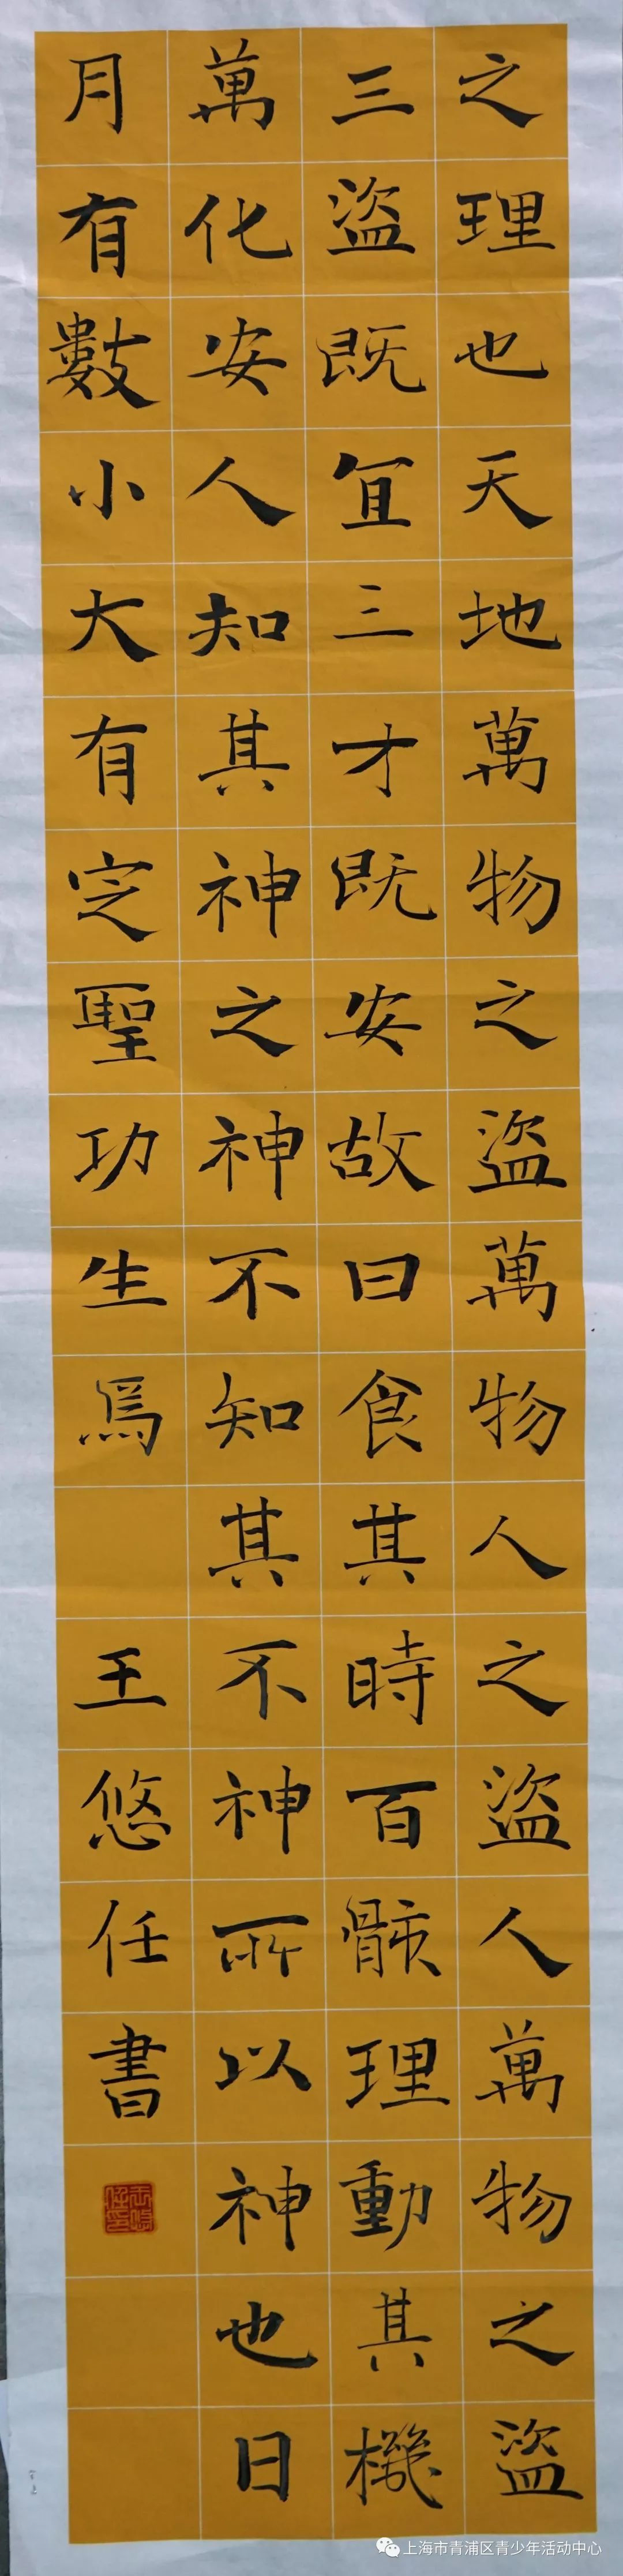 之理也天地萬物之盜萬物人之盜人萬物之盜
三盜既宜三才既安故曰食其時百骸理動其機
萬化安人知其神之神不知其不神所以神也日
月有數小大有定聖功生焉 王悠任書
王悠任印
上海市青浦区青少年活动中心